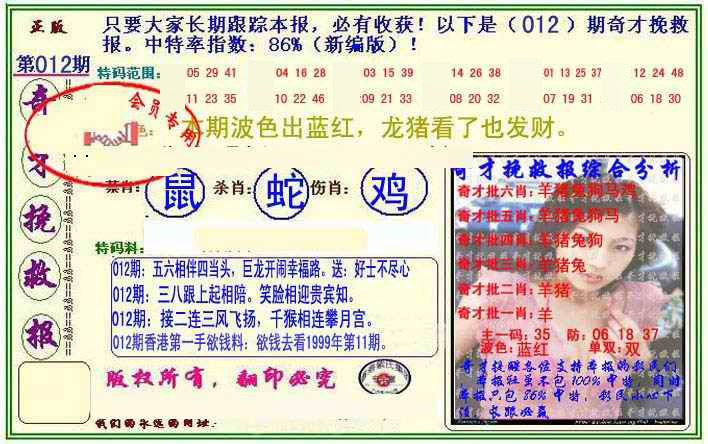 正版
只要大家长期跟踪本报，必有收获！以下是（012）期奇才挽救
报。中特率指数：86%（新编版）！
第012期
奇才挽救报
特码范围：
05 29 41 04 16 28 03 15 39 14 26 38 01 13 25 37 12 24 48
11 23 35 10 22 46 09 21 33 08 20 32 07 19 31 06 18 30
会员专用
本期波色出蓝红，龙猪看了也发财。
禁肖：鼠 杀肖：蛇 伤肖：鸡
特码料：
012期：五六相伴四当头，巨龙开闹幸福路。送：好士不尽心
012期：三八跟上起相陪。笑脸相迎贵宾知。
012期：接二连三风飞扬，千猴相连攀月宫。
012期香港第一手欲钱料：欲钱去看1999年第11期。
版权所有，翻印必究
我们的永远的网址：
奇才挽救报综合分析
奇才批六肖：羊猪兔狗马鸡
奇才批五肖：羊猪兔狗马
奇才批四肖：羊猪兔狗
奇才批三肖：羊猪兔
奇才批二肖：羊猪
奇才批一肖：羊
主一码：35 防：06 18 37
波色：蓝红 单双：双
奇才挽救各位支持本报的彩民们
本报社虽不包100%中特，同时
本报只包86%中特，彩民小心下
注